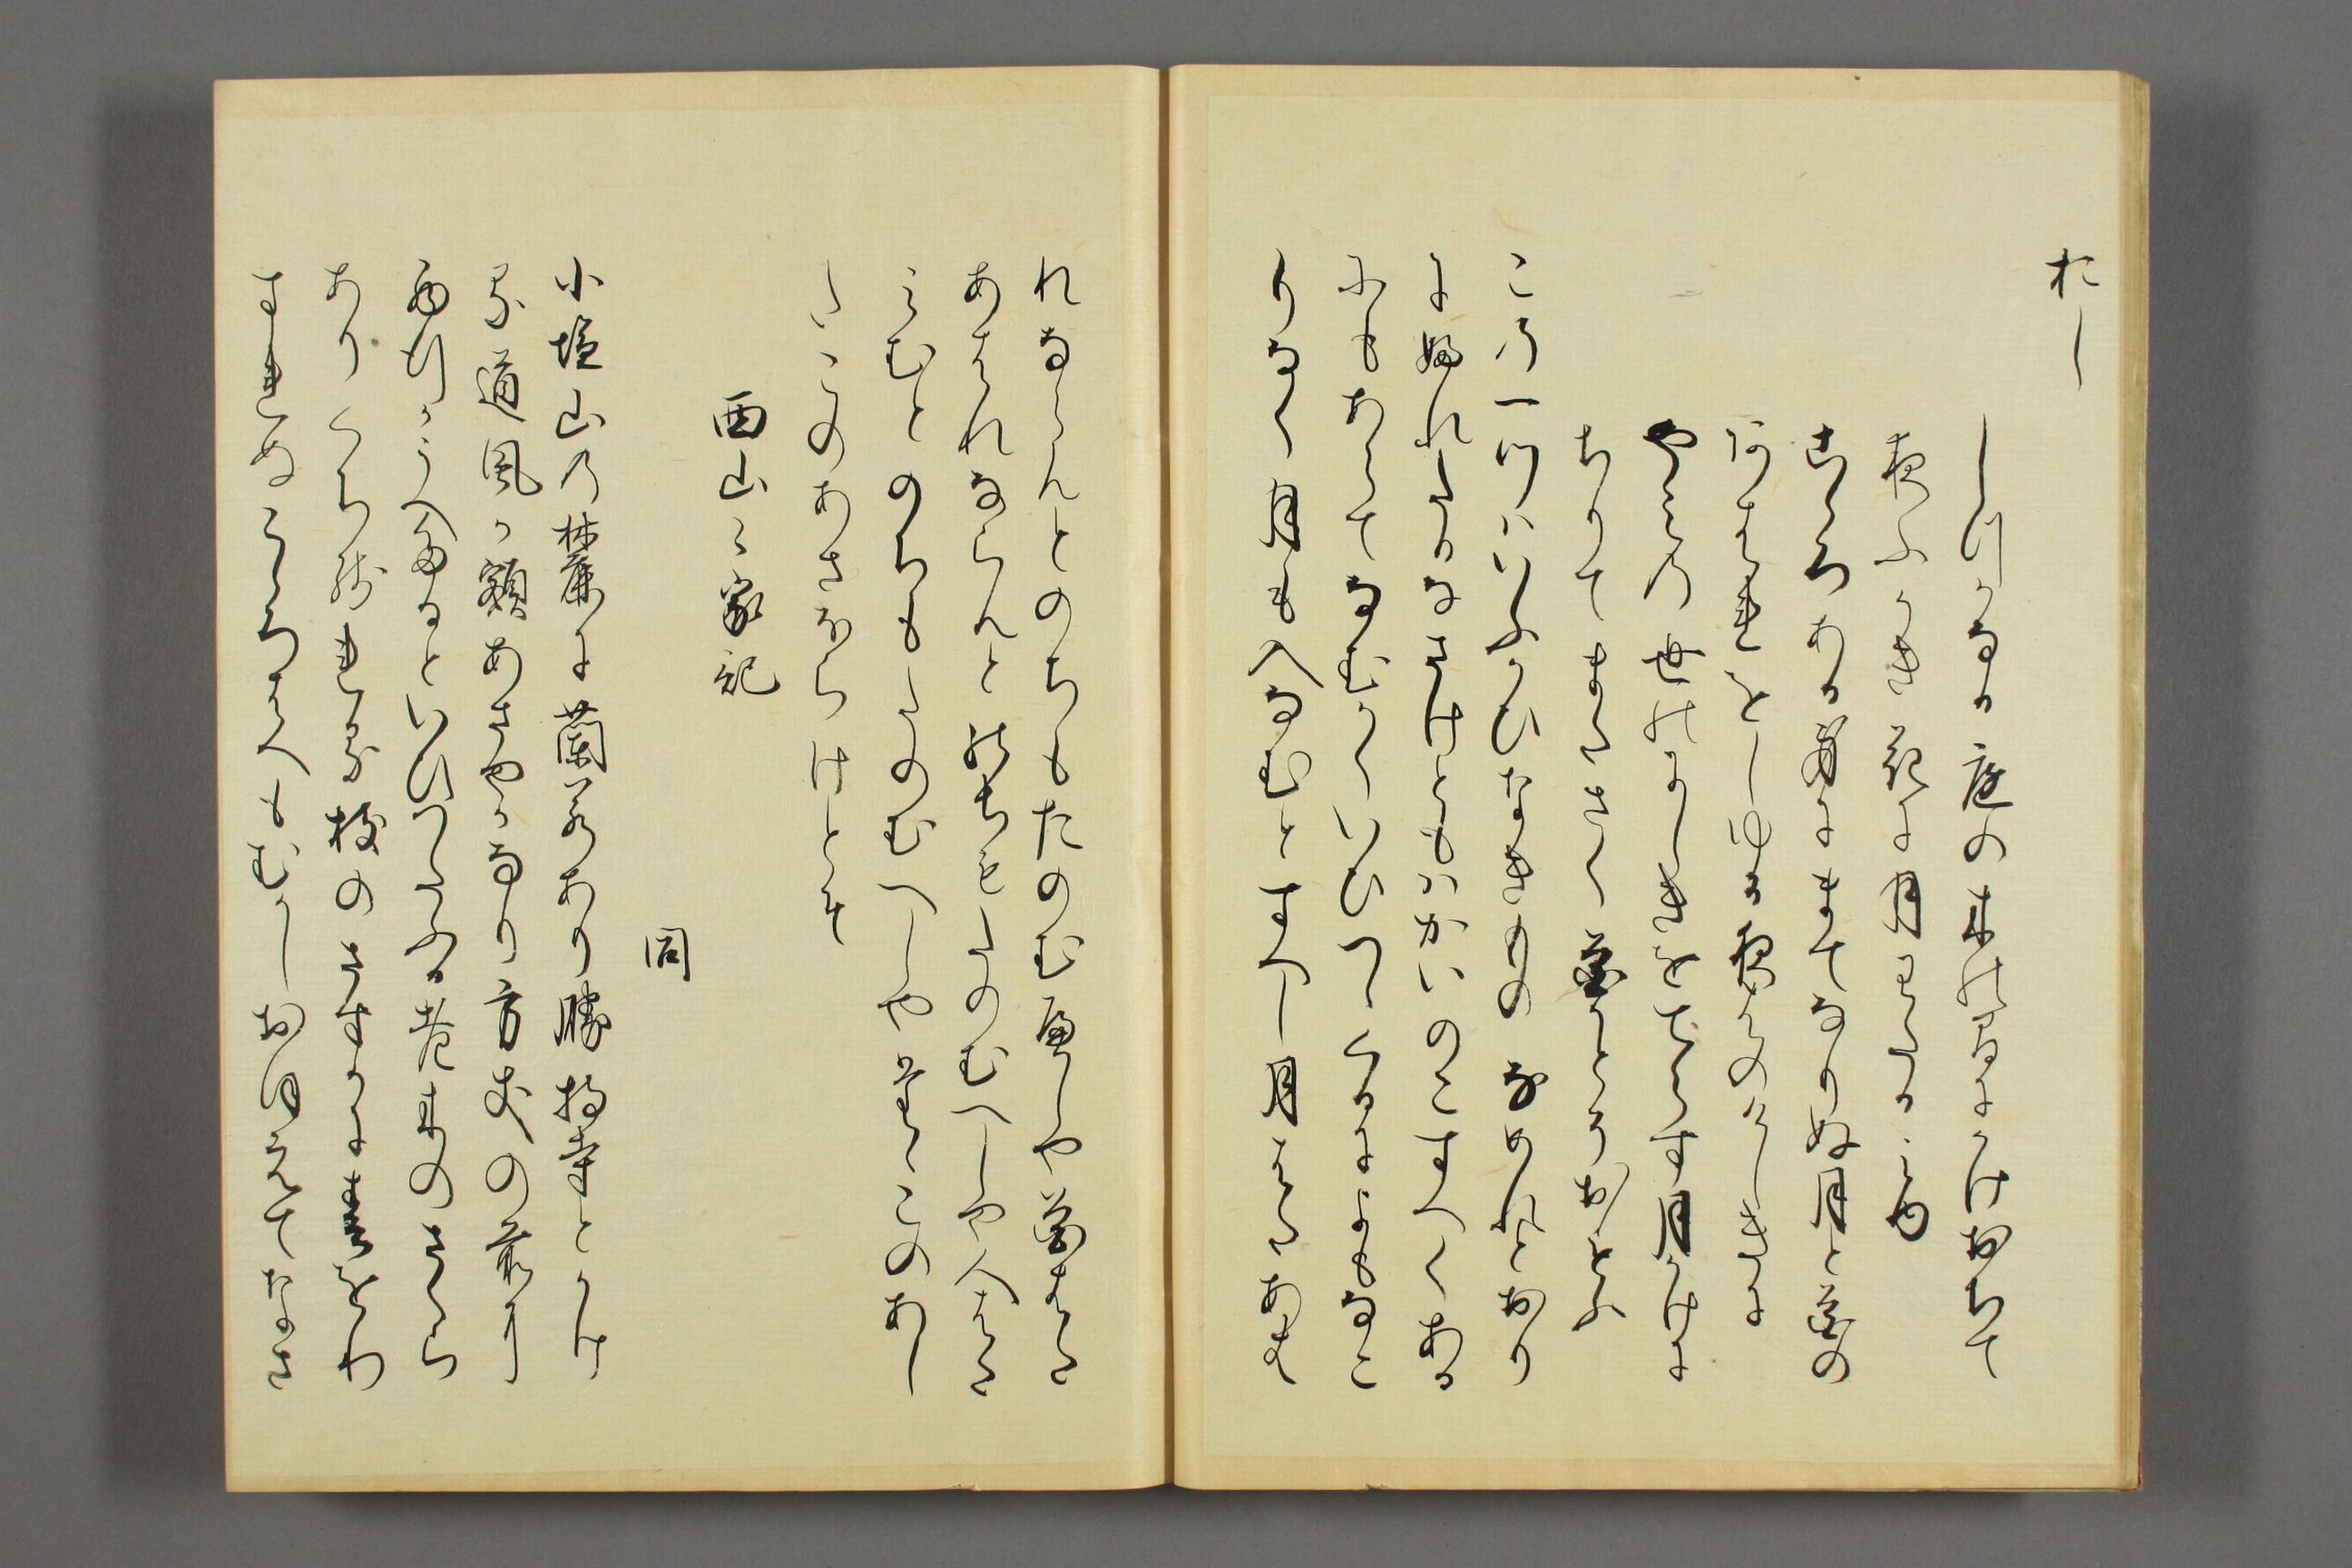 たし
しつかなる庭の木のまにかけおちて
夜ふかき花に月わたるみゆ
こゝろある身にまてなりぬ月と花の
あはれをしゆる夜はのけしきに
やみの世のにしきをてらす月かけに
ちりてまたさく花かとそおもふ
この一つはいふかひなきものなめれとおり
にふれたるなさけともはかいのこすへくある
にもあらてなむかくいひつゝくるによもなこ
りなく月も入なむとすへし月はたあす
れならんとのちもたのむへしや花はた
あすならんとのちをたのむへしや人はた
みむとのちもたのむへしや花もこのあし
たこのあさほらけとそ
同
西山の家記
小塩山の麓に蘭若あり勝持寺とかけ
る道風の額あさやかなり方丈の前に
西行かうへたるといひつたふる老木のさくら
ありくち残れる枝のさすかに春をわ
すれぬこゝちはへもむかしおほえてなさ